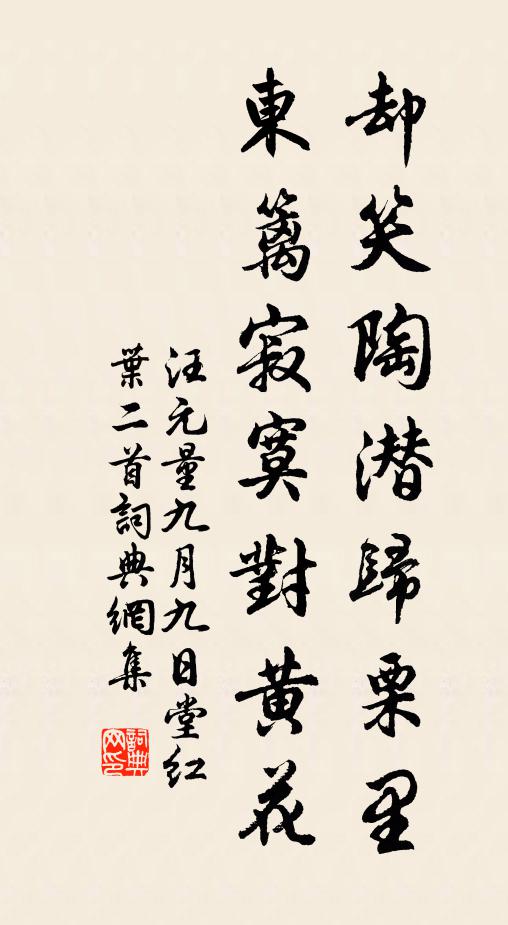 却笑陶潛歸栗里
東籬寂寞對黃花
汪元量九月九日堂紅
葉二首詞典網集
詞典
网印